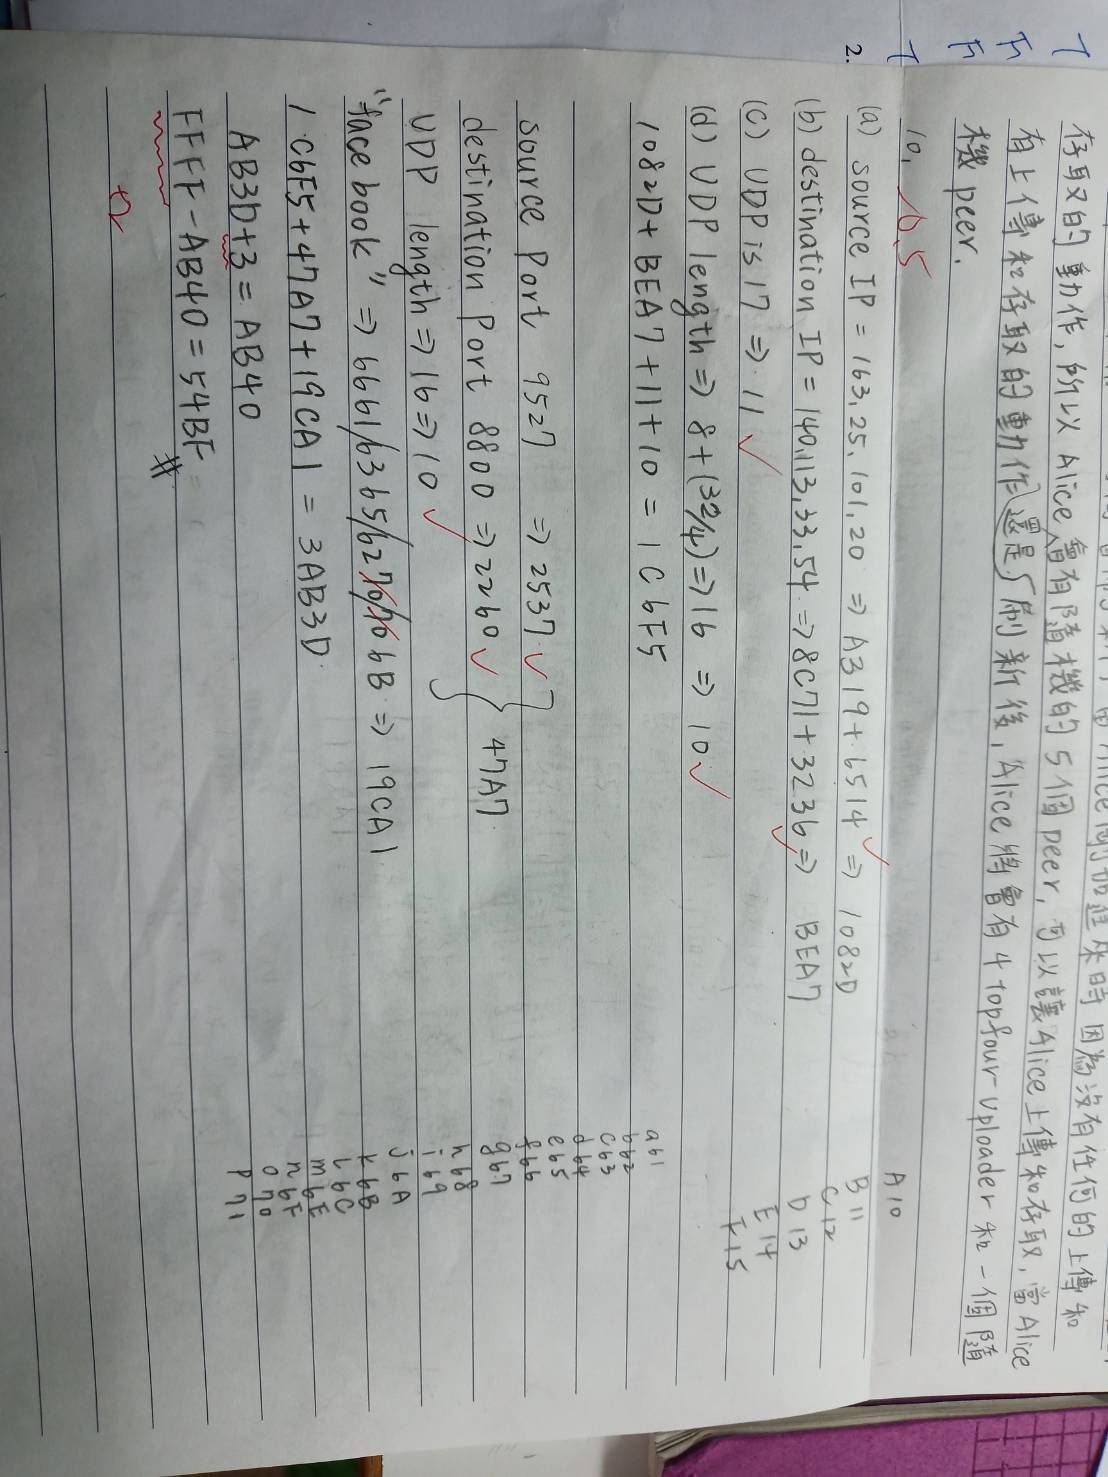 存取的動作, 所以 Alice 會有隨機的 5 個 peer, 可以讓 Alice 上傳和存取, 當 Alice
有上傳和存取的動作還是刷新後, Alice 將會有 4 top four-uploader 和一個隨
機 peer.
10, 6.5
2.
(a) source IP = 163.25.101.20 ⇒ A319 + 6514 ⇒ 1082D
(b) destination IP = 140.113.33.54 ⇒ 8C71 + 3236 ⇒ BEA7
(c) UDP is 17 ⇒ 11
(d) UDP length ⇒ 8 + (32/4) ⇒ 16 ⇒ 10
1082D + BEA7 + 11 + 10 = 1C6F5
source Port 9527 ⇒ 2537
destination Port 8800 ⇒ 2260 } 47A7
UDP length ⇒ 16 ⇒ 10
"facebook" ⇒ 6661/6365/6270/706B ⇒ 19CA1
1C6F5 + 47A7 + 19CA1 = 3AB3D
AB3D + 3 = AB40
FFFF - AB40 = 54BF #
-2
A 10
B 11
C 12
D 13
E 14
F 15
a 61
b 62
c 63
d 64
e 65
f 66
g 67
h 68
i 69
j 6A
k 6B
l 6C
m 6E
n 6F
o 70
p 71